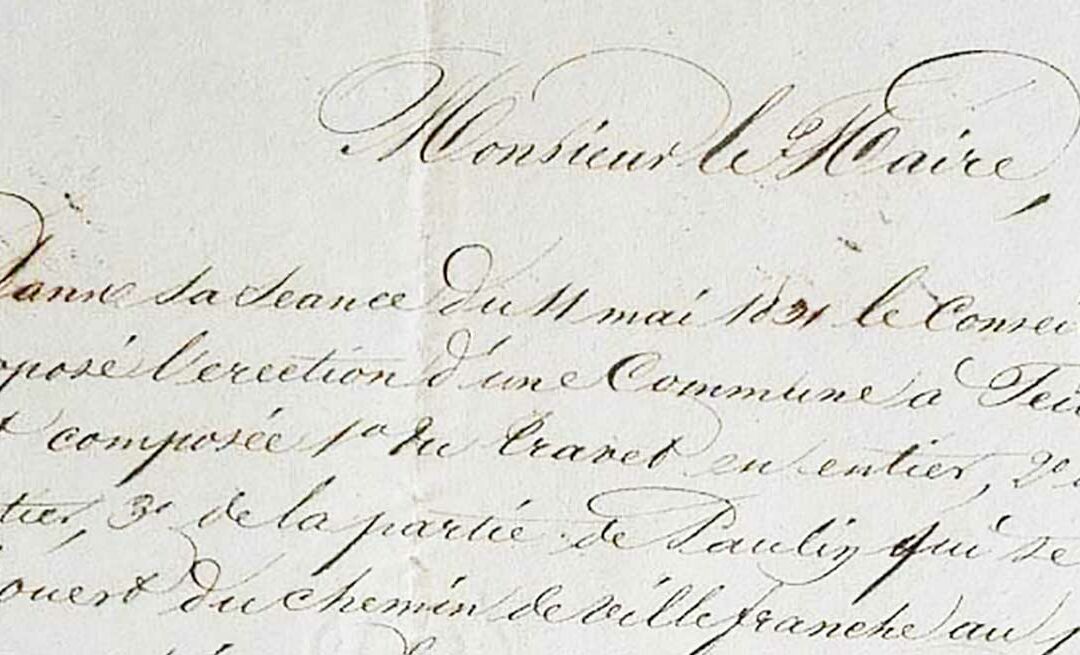 Monsieur le Maire,
Dans sa seance du 11 mai 1831 le Consei
oposé l'erection d'une Commune à Teil
t composée 1o du Travet en entier, 2o
tier, 3o de la partie de Paulin qui se
ouest du chemin de villefranche au